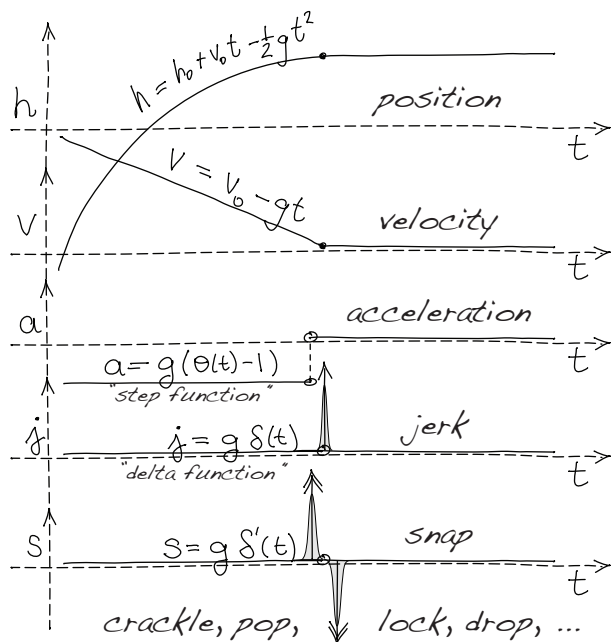 h = h₀ + v₀t - ½gt²
h
position
t
V = V₀ - gt
V
velocity
t
a
acceleration
t
a = g(θ(t)-1)
"step function"
j
j = g δ(t)
jerk
"delta function"
t
s
s = g δ'(t)
snap
t
crackle, pop, lock, drop, ...